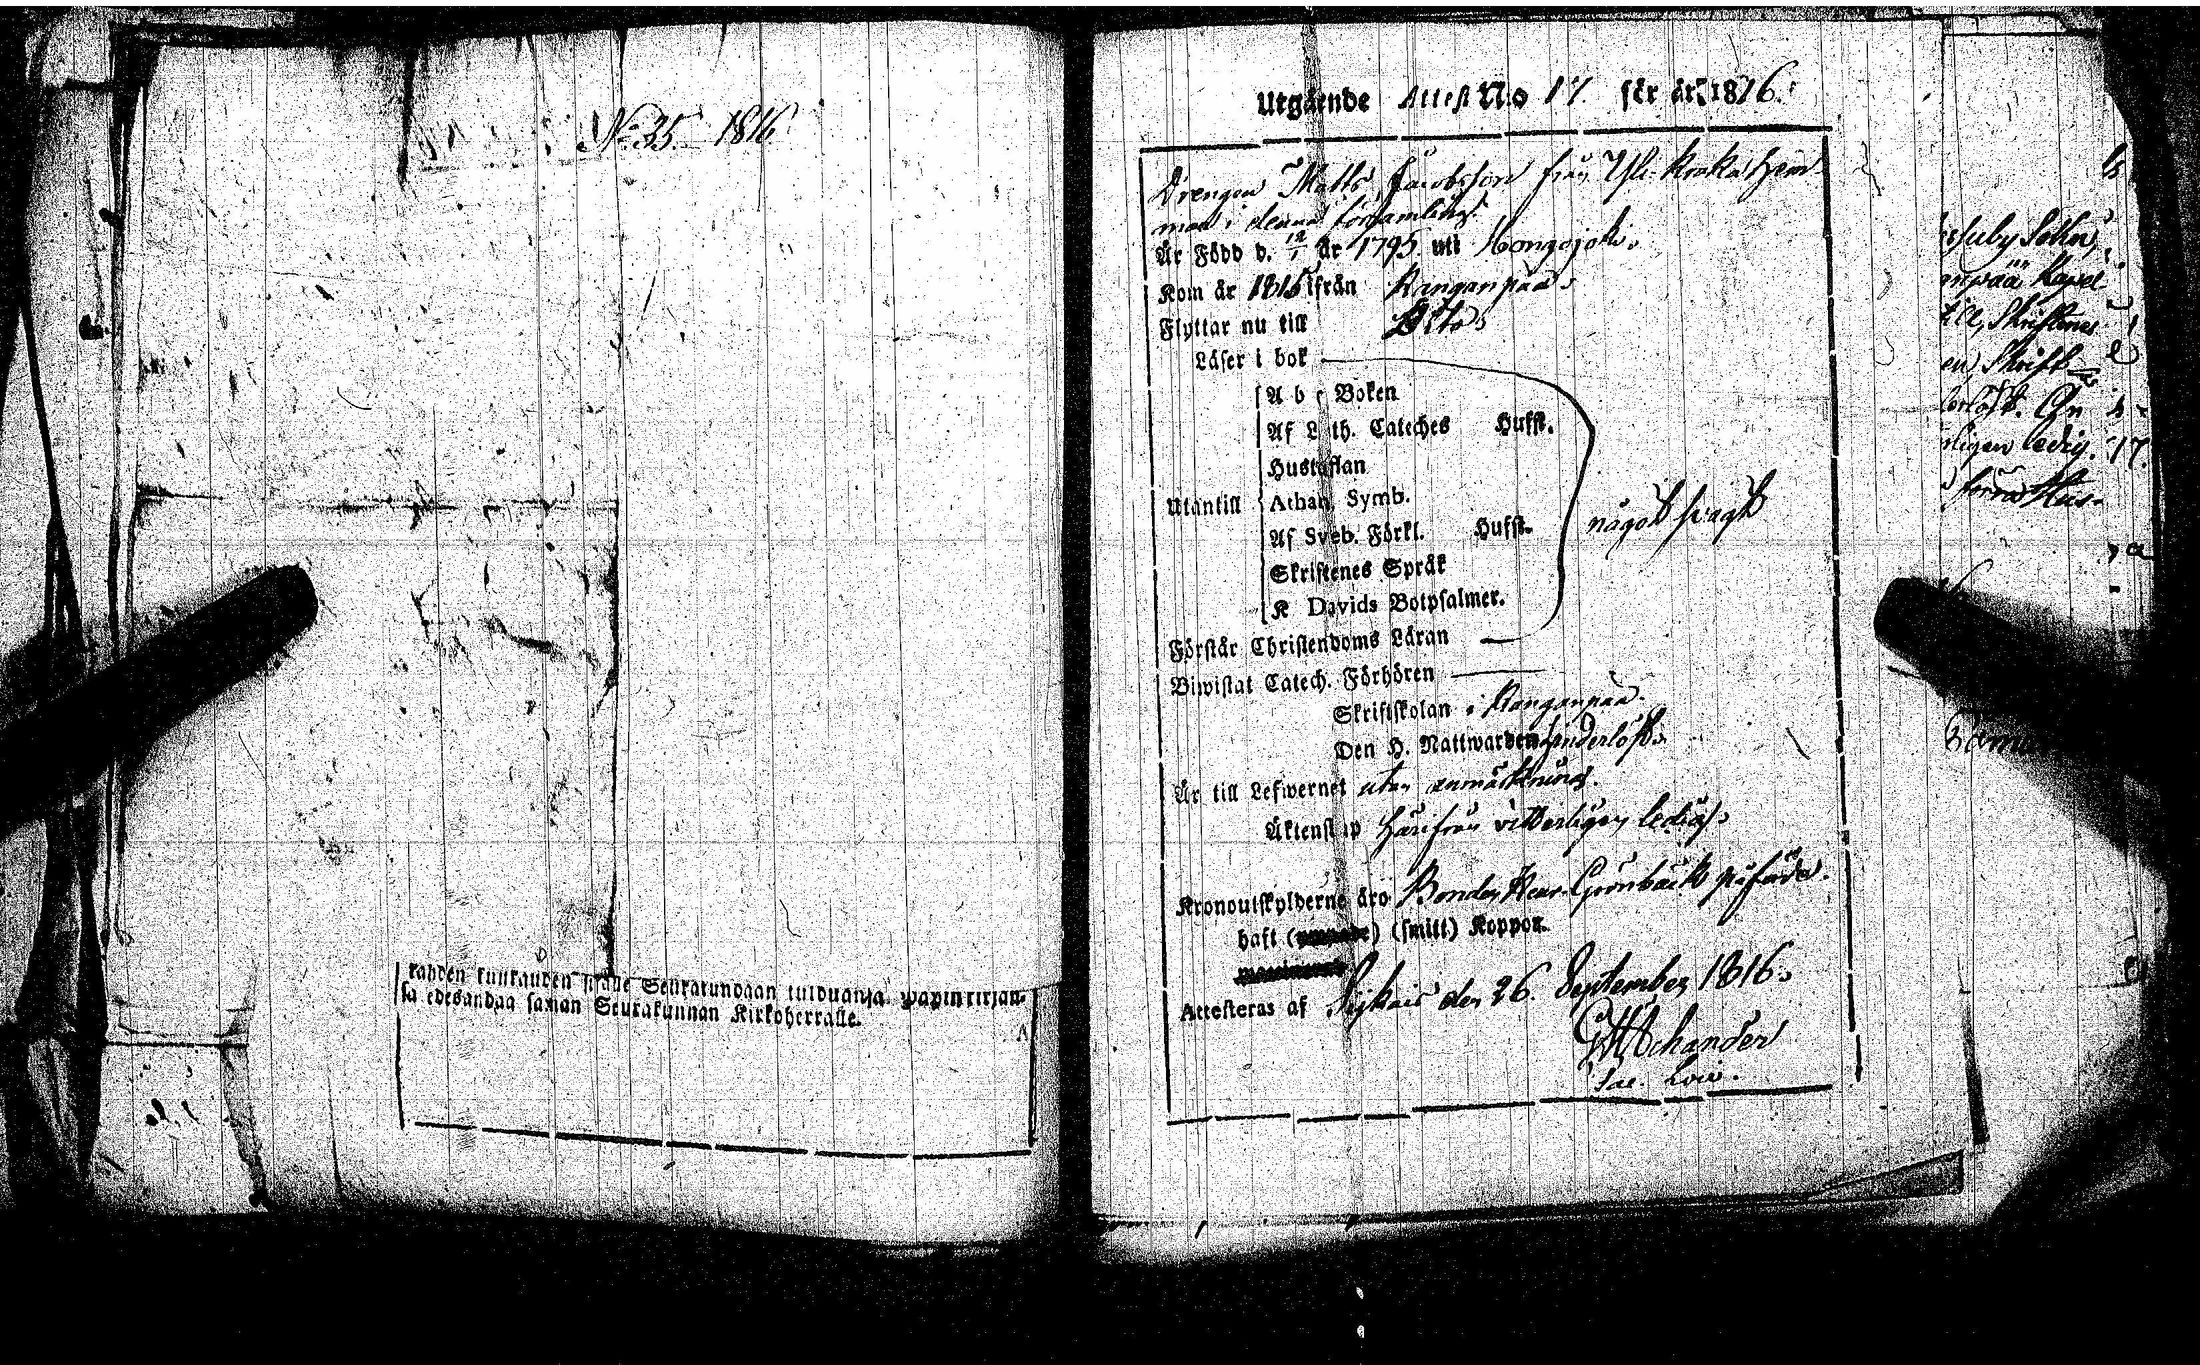 No 35. 1816
kahden kuukauden sisälle Seurakundaan tulduansa. papin kirjan-
sa edesandaa saman Seurakunnan Kirkoherralle.
Utgående Attest No 17. för år 1816.
Drengen Matts Jacobsson från Yli-Krokla Hem-
man i denna församling.
Är Född d. 12/7 år 1795 uti Hongojoki.
Kom år 1815 ifrån Kanganpää.
Flyttar nu till Dito.
Läser i bok
A b c Boken
Af Luth. Cateches Hufst.
Hustaflan
Utantill Athan. Symb.
Af Sveb. Förkl. Hufst.
Skriftenes Språk
K Davids Botpsalmer.
något svagt
Förstår Christendoms Läran
Biwistat Catech. Förhören
Skriftskolan i Kanganpää.
Den H. Nattwarden hinderlöst.
Är till Lefwernet utan anmärkning.
Äktenskap härifrån vitterligen ledig.
Kronoutskylderne äro Bonden Grönbäck påförde.
haft () (smitt) Koppor.
Attesteras af Sijkais den 26. September 1816.
Sac. Lov.
esuby Sokn,
mpää Kapel
Skriftenes
en, Skrift
derlöst. Än
rligen ledig. 17.
förra Hus-